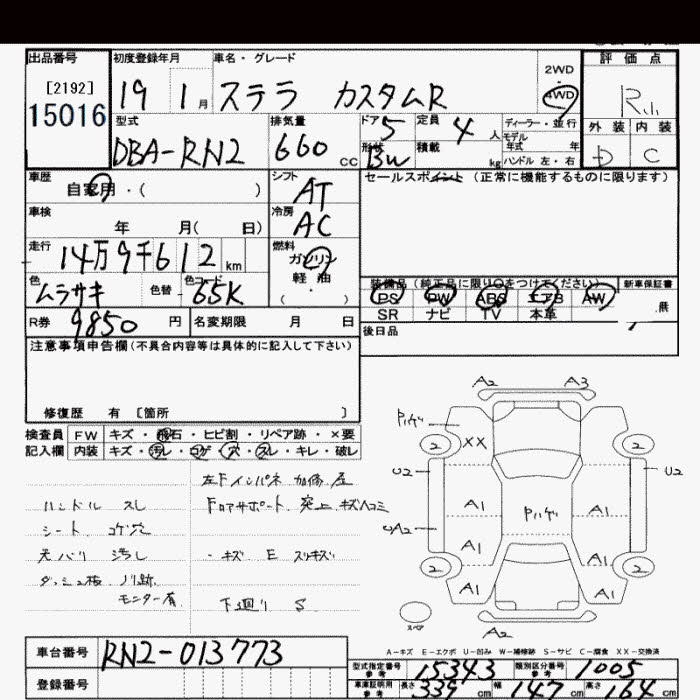 出品番号 初度登録年月 車名・グレード 評価点
[2192]
15016
19 1月 ステラ カスタムR 2WD 4WD R
型式 排気量 ドア 定員 ディーラー・並行 外装 内装
DBA-RN2 660cc 5 4人 モデル年式 年 D C
形状 BW 積載 kg ハンドル 左・右
車歴 自家用・( ) シフト AT セールスポイント(正常に機能するものに限ります)
車検 年 月( 日) 冷房 AC
走行 14万9千612km 燃料 ガソリン 軽油 ( ・ )
色 ムラサキ 色替 色コード 65K
装備品(純正品に限り○をつけてください) 新車保証書
PS PW ABS エアB AW
SR ナビ TV 本革 無
R券 9850円 名変期限 月 日 後日品
注意事項申告欄(不具合内容等は具体的に記入して下さい)
修復歴 有 [箇所 ]
検査員 FW キズ・飛石・ヒビ割・リペア跡・×要
記入欄 内装 キズ・汚レ・コゲ・穴・スレ・キレ・破レ
左Fインパネ 加修 歪
ハンドル スレ
Fロアサポート 突上 キズヘコミ
シート コゲ穴
天バリ 汚レ
・キズ E スリキズ
ダッシュ板 ノリ跡
モニター有
下廻り S
A2 A3
Pハゲ
2 XX 2
U2 U2
A1 A1
Pハゲ
UA2
A1
2 2
A1 A1
スペア
A2
A-キズ E-エクボ U-凹み W-補修跡 S-サビ C-腐食 XX-交換済
車台番号 RN2-013773
登録番号
型式指定番号 参考 15343 類別区分番号 参考 1005
車庫証明用 参考 長さ 339cm 幅 147cm 高さ 164cm